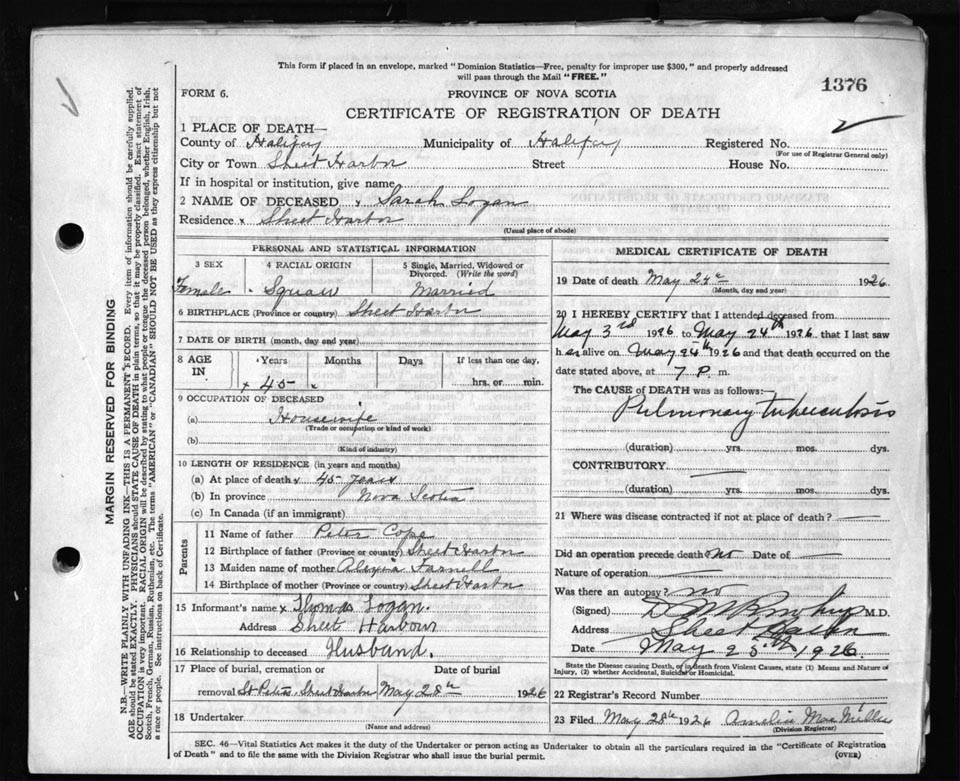 This form if placed in an envelope, marked "Dominion Statistics—Free, penalty for improper use $300," and properly addressed
will pass through the Mail "FREE."
1376
FORM 6.
PROVINCE OF NOVA SCOTIA
CERTIFICATE OF REGISTRATION OF DEATH
2
1 PLACE OF DEATH—
County of Halifax Municipality of Halifax Registered No.
(For use of Registrar General only)
City or Town Sheet Harbor Street House No.
If in hospital or institution, give name
2 NAME OF DECEASED x Sarah Logan
Residence x Sheet Harbor
(Usual place of abode)
PERSONAL AND STATISTICAL INFORMATION
3 SEX 4 RACIAL ORIGIN 5 Single, Married, Widowed or Divorced. (Write the word)
Female Squaw Married
6 BIRTHPLACE (Province or country) Sheet Harbor
7 DATE OF BIRTH (month, day and year)
8 AGE IN Years Months Days If less than one day,
x 45 x hrs. or min.
9 OCCUPATION OF DECEASED
(a) Housewife
(Trade or occupation or kind of work)
(b)
(Kind of industry)
10 LENGTH OF RESIDENCE (in years and months)
(a) At place of death x 45 years
(b) In province Nova Scotia
(c) In Canada (if an immigrant)
Parents
11 Name of father Peter Cope
12 Birthplace of father (Province or country) Sheet Harbor
13 Maiden name of mother Farnell
14 Birthplace of mother (Province or country) Sheet Harbor
15 Informant's name x Thomas Logan.
Address Sheet Harbour
16 Relationship to deceased Husband.
17 Place of burial, cremation or Date of burial
removal St Peters, Sheet Harbor May 28th 1926
18 Undertaker
(Name and address)
MEDICAL CERTIFICATE OF DEATH
19 Date of death May 24th 1926
(Month, day and year)
20 I HEREBY CERTIFY that I attended deceased from
May 3rd 1926 to May 24th 1926, that I last saw
h er alive on May 24th 1926 and that death occurred on the
date stated above, at 7 P. m.
The CAUSE of DEATH was as follows:—
Pulmonary tuberculosis
(duration) yrs. mos. dys.
CONTRIBUTORY
(duration) yrs. mos. dys.
21 Where was disease contracted if not at place of death?
Did an operation precede death? no Date of
Nature of operation
Was there an autopsy? no
(Signed) M.D.
Address Sheet Harbor
Date May 25th 1926
State the Disease causing Death, or in death from Violent Causes, state (1) Means and Nature of
Injury, (2) whether Accidental, Suicidal or Homicidal.
22 Registrar's Record Number
23 Filed May 28th 1926 Amelia MacMillan
(Division Registrar)
SEC. 46—Vital Statistics Act makes it the duty of the Undertaker or person acting as Undertaker to obtain all the particulars required in the "Certificate of Registration
of Death" and to file the same with the Division Registrar who shall issue the burial permit.
(OVER)
MARGIN RESERVED FOR BINDING
N.B.—WRITE PLAINLY WITH UNFADING INK—THIS IS A PERMANENT RECORD. Every item of information should be carefully supplied.
AGE should be stated EXACTLY. PHYSICIANS should STATE CAUSE OF DEATH in plain terms, so that it may be properly classified. Exact statement of
OCCUPATION is very important. RACIAL ORIGIN will be described by stating to what people or tongue the deceased person belonged, whether English, Irish,
Scotch, French, German, Russian, Ruthenian, etc. The terms "AMERICAN" or "CANADIAN" SHOULD NOT BE USED as they express citizenship but not
a race or people. See instructions on back of Certificate.